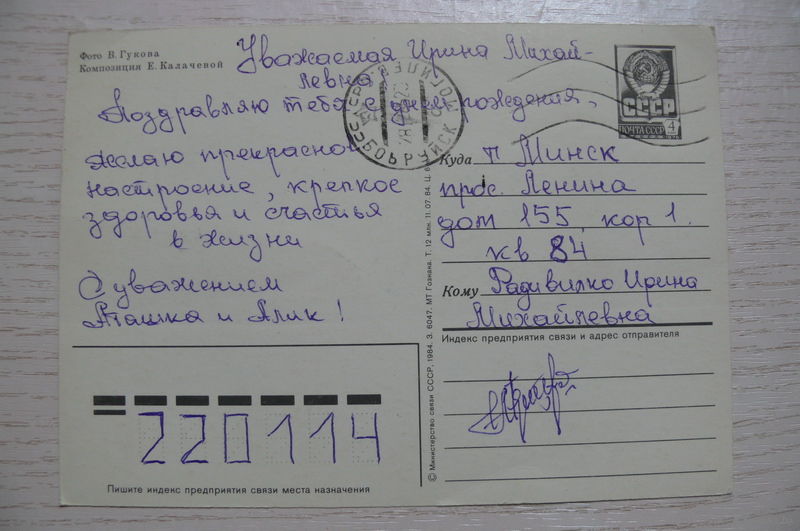 Фото В. Гукова
Композиция Е. Калачевой
Уважаемая Ирина Михай-
левна
Поздравляю тебя с днем рождения,
желаю прекрасно
настроение, крепкое
здоровья и счастья
в жизни
С уважением
и Алик!
СССР
ПОЧТА СССР 4
БОБРУЙСК
Куда г. Минск
прос. Ленина
дом 155, кор 1.
кв 84
Кому Радивилко Ирина
Михайлевна
Индекс предприятия связи и адрес отправителя
220114
Пишите индекс предприятия связи места назначения
© Министерство связи СССР, 1984. З. 6047. МТ Гознака. Т. 12 млн. 11.07.84. Ц. 6